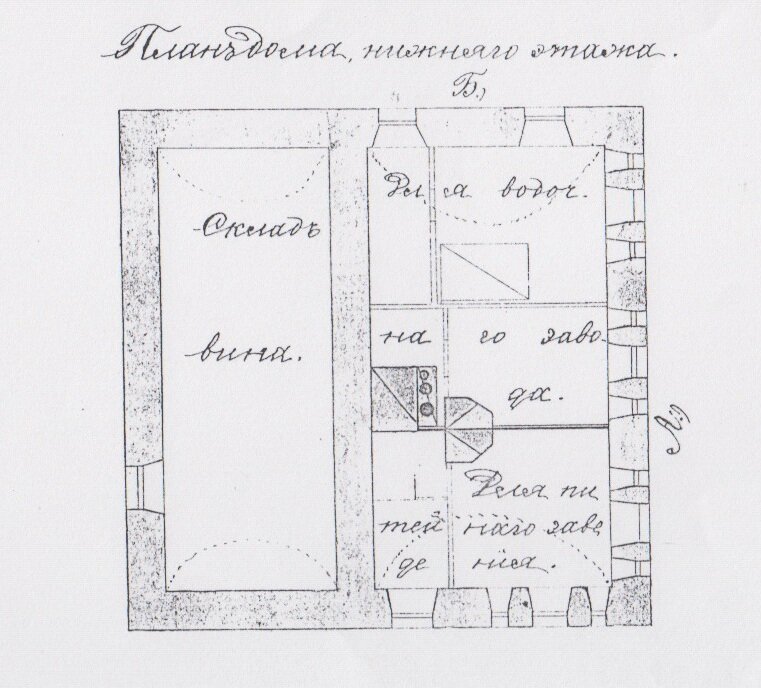 Планъ дома, нижняго этажа.
Б.)
Складъ
вина.
Для водоч.
на го заво
да.
А.)
Для пи
тей наго заве
де нія.